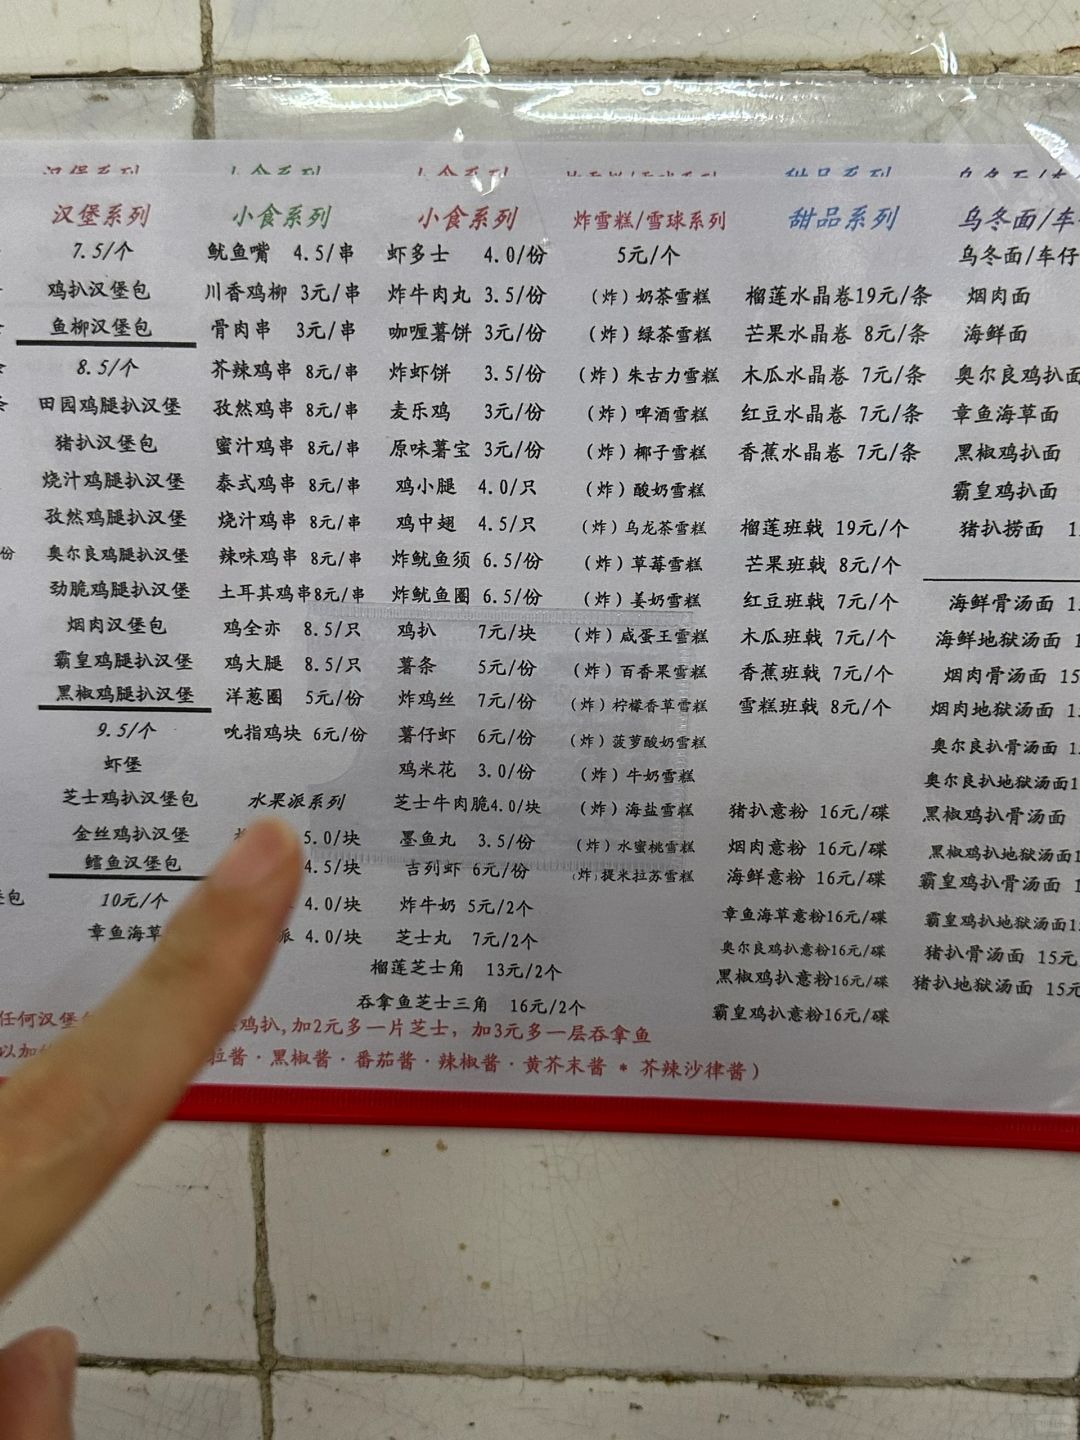 汉堡系列
7.5/个
鸡扒汉堡包
鱼柳汉堡包
8.5/个
田园鸡腿扒汉堡
猪扒汉堡包
烧汁鸡腿扒汉堡
孜然鸡腿扒汉堡
奥尔良鸡腿扒汉堡
劲脆鸡腿扒汉堡
烟肉汉堡包
霸皇鸡腿扒汉堡
黑椒鸡腿扒汉堡
9.5/个
虾堡
芝士鸡扒汉堡包
金丝鸡扒汉堡
鳕鱼汉堡包
10元/个
章鱼海草
小食系列
鱿鱼嘴 4.5/串
川香鸡柳 3元/串
骨肉串 3元/串
芥辣鸡串 8元/串
孜然鸡串 8元/串
蜜汁鸡串 8元/串
泰式鸡串 8元/串
烧汁鸡串 8元/串
辣味鸡串 8元/串
土耳其鸡串8元/串
鸡全亦 8.5/只
鸡大腿 8.5/只
洋葱圈 5元/份
吮指鸡块 6元/份
水果派系列
5.0/块
4.5/块
4.0/块
派 4.0/块
小食系列
虾多士 4.0/份
炸牛肉丸 3.5/份
咖喱薯饼 3元/份
炸虾饼 3.5/份
麦乐鸡 3元/份
原味薯宝 3元/份
鸡小腿 4.0/只
鸡中翅 4.5/只
炸鱿鱼须 6.5/份
炸鱿鱼圈 6.5/份
鸡扒 7元/块
薯条 5元/份
炸鸡丝 7元/份
薯仔虾 6元/份
鸡米花 3.0/份
芝士牛肉脆4.0/块
墨鱼丸 3.5/份
吉列虾 6元/份
炸牛奶 5元/2个
芝士丸 7元/2个
榴莲芝士角 13元/2个
吞拿鱼芝士三角 16元/2个
炸雪糕/雪球系列
5元/个
(炸)奶茶雪糕
(炸)绿茶雪糕
(炸)朱古力雪糕
(炸)啤酒雪糕
(炸)椰子雪糕
(炸)酸奶雪糕
(炸)乌龙茶雪糕
(炸)草莓雪糕
(炸)姜奶雪糕
(炸)咸蛋王雪糕
(炸)百香果雪糕
(炸)柠檬香草雪糕
(炸)菠萝酸奶雪糕
(炸)牛奶雪糕
(炸)海盐雪糕
(炸)水蜜桃雪糕
(炸)提米拉苏雪糕
甜品系列
榴莲水晶卷19元/条
芒果水晶卷 8元/条
木瓜水晶卷 7元/条
红豆水晶卷 7元/条
香蕉水晶卷 7元/条
榴莲班戟 19元/个
芒果班戟 8元/个
红豆班戟 7元/个
木瓜班戟 7元/个
香蕉班戟 7元/个
雪糕班戟 8元/个
猪扒意粉 16元/碟
烟肉意粉 16元/碟
海鲜意粉 16元/碟
章鱼海草意粉16元/碟
奥尔良鸡扒意粉16元/碟
黑椒鸡扒意粉16元/碟
霸皇鸡扒意粉16元/碟
乌冬面/车仔
乌冬面/车仔
烟肉面
海鲜面
奥尔良鸡扒面
章鱼海草面
黑椒鸡扒面
霸皇鸡扒面
猪扒捞面
海鲜骨汤面
海鲜地狱汤面
烟肉骨汤面 15
烟肉地狱汤面
奥尔良扒骨汤面
奥尔良扒地狱汤面
黑椒鸡扒骨汤面
黑椒鸡扒地狱汤面
霸皇鸡扒骨汤面
霸皇鸡扒地狱汤面
猪扒骨汤面 15元
猪扒地狱汤面 15元
任何汉堡 鸡扒,加2元多一片芝士，加3元多一层吞拿鱼
以加 拉酱·黑椒酱·番茄酱·辣椒酱·黄芥末酱 * 芥辣沙律酱)